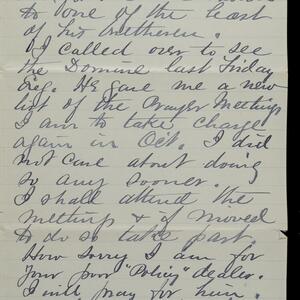 to one of the least
of his brethren.
I called over to see
the Domine last Friday
eve. He gave me a new
list of the Prayer Meetings
I am to take charge
again in Oct. I did
not care about doing
so any sooner.
I shall attend the
meetings & if moved
to do so take part.
How sorry I am for
your poor "Policy" dealer.
I will pray for him.